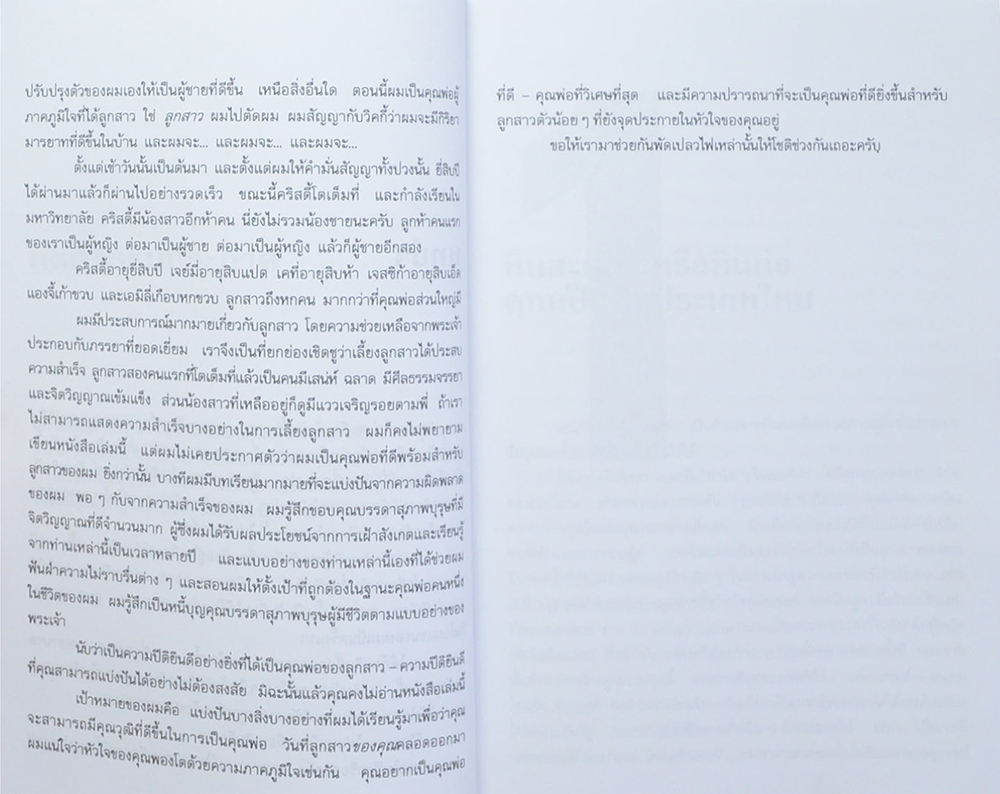 ปรับปรุงตัวของผมเองให้เป็นผู้ชายที่ดีขึ้น เหนือสิ่งอื่นใด ตอนนี้ผมเป็นคุณพ่อผู้
ภาคภูมิใจที่ได้ลูกสาว ใช่ ลูกสาว ผมไปตัดผม ผมสัญญากับวิคกี้ว่าผมจะมีกิริยา
มารยาทที่ดีขึ้นในบ้าน และผมจะ... และผมจะ... และผมจะ...
ตั้งแต่เช้าวันนั้นเป็นต้นมา และตั้งแต่ผมให้คำมั่นสัญญาทั้งปวงนั้น ยี่สิบปี
ได้ผ่านมาแล้วก็ผ่านไปอย่างรวดเร็ว ขณะนี้คริสตี้โตเต็มที่ และกำลังเรียนใน
มหาวิทยาลัย คริสตี้มีน้องสาวอีกห้าคน นี่ยังไม่รวมน้องชายนะครับ ลูกห้าคนแรก
ของเราเป็นผู้หญิง ต่อมาเป็นผู้ชาย ต่อมาเป็นผู้หญิง แล้วก็ผู้ชายอีกสอง
คริสตี้อายุยี่สิบปี เจย์มี่อายุสิบแปด เคที่อายุสิบห้า เจสซิก้าอายุสิบเอ็ด
แองจี้เก้าขวบ และเอมิลี่เกือบหกขวบ ลูกสาวถึงหกคน มากกว่าที่คุณพ่อส่วนใหญ่มี
ผมมีประสบการณ์มากมายเกี่ยวกับลูกสาว โดยความช่วยเหลือจากพระเจ้า
ประกอบกับภรรยาที่ยอดเยี่ยม เราจึงเป็นที่ยกย่องเชิดชูว่าเลี้ยงลูกสาวได้ประสบ
ความสำเร็จ ลูกสาวสองคนแรกที่โตเต็มที่แล้วเป็นคนมีเสน่ห์ ฉลาด มีศีลธรรมจรรยา
และจิตวิญญาณเข้มแข็ง ส่วนน้องสาวที่เหลืออยู่ก็ดูมีแววเจริญรอยตามพี่ ถ้าเรา
ไม่สามารถแสดงความสำเร็จบางอย่างในการเลี้ยงลูกสาว ผมก็คงไม่พยายาม
เขียนหนังสือเล่มนี้ แต่ผมไม่เคยประกาศตัวว่าผมเป็นคุณพ่อที่ดีพร้อมสำหรับ
ลูกสาวของผม ยิ่งกว่านั้น บางทีผมมีบทเรียนมากมายที่จะแบ่งปันจากความผิดพลาด
ของผม พอ ๆ กับจากความสำเร็จของผม ผมรู้สึกขอบคุณบรรดาสุภาพบุรุษที่มี
จิตวิญญาณที่ดีจำนวนมาก ผู้ซึ่งผมได้รับผลประโยชน์จากการเฝ้าสังเกตและเรียนรู้
จากท่านเหล่านี้เป็นเวลาหลายปี และแบบอย่างของท่านเหล่านี้เองที่ได้ช่วยผม
ฟันฝ่าความไม่ราบรื่นต่าง ๆ และสอนผมให้ตั้งเป้าที่ถูกต้องในฐานะคุณพ่อคนหนึ่ง
ในชีวิตของผม ผมรู้สึกเป็นหนี้บุญคุณบรรดาสุภาพบุรุษผู้มีชีวิตตามแบบอย่างของ
พระเจ้า
นับว่าเป็นความปีติยินดีอย่างยิ่งที่ได้เป็นคุณพ่อของลูกสาว – ความปีติยินดี
ที่คุณสามารถแบ่งปันได้อย่างไม่ต้องสงสัย มิฉะนั้นแล้วคุณคงไม่อ่านหนังสือเล่มนี้
เป้าหมายของผมคือ แบ่งปันบางสิ่งบางอย่างที่ผมได้เรียนรู้มาเพื่อว่าคุณ
จะสามารถมีคุณวุฒิที่ดีขึ้นในการเป็นคุณพ่อ วันที่ลูกสาวของคุณคลอดออกมา
ผมแน่ใจว่าหัวใจของคุณพองโตด้วยความภาคภูมิใจเช่นกัน คุณอยากเป็นคุณพ่อ
ที่ดี – คุณพ่อที่วิเศษที่สุด และมีความปรารถนาที่จะเป็นคุณพ่อที่ดียิ่งขึ้นสำหรับ
ลูกสาวตัวน้อย ๆ ที่ยังจุดประกายในหัวใจของคุณอยู่
ขอให้เรามาช่วยกันพัดเปลวไฟเหล่านั้นให้โชติช่วงกันเถอะครับ